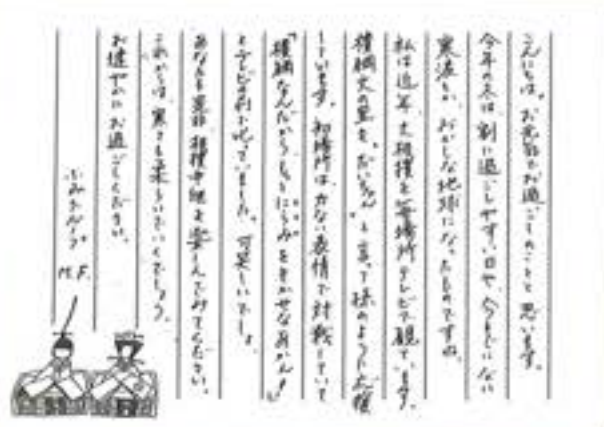 こんにちは。お元気でお過ごしのことと思います。
今年の冬は、割に過ごしやすい日や、今までにない
寒波とか、おかしな地球になったものですね。
私は近年、大相撲を毎場所テレビで観ています。
横綱 の里を、だいちゃん。と言って孫のように応援
しています。初場所は、 ない表情で対戦していて
「横綱なんだからもっとにらみをきかせなあかん!」
とテレビの前で叱っていました。可笑しいでしょ。
あなたも是非、相撲中継を楽しんでみてください。
これからは、寒さも柔らいでいくでしょう。
お健やかにお過ごしください。
M.F.